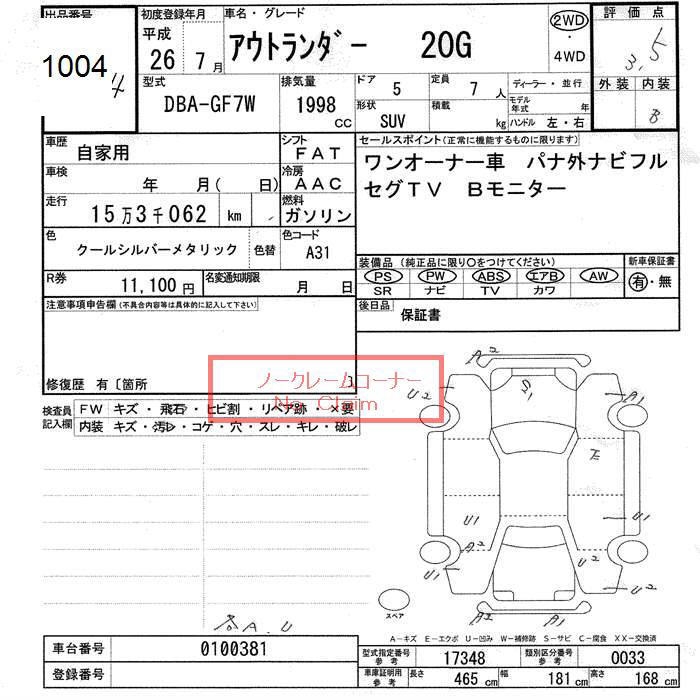 出品番号
1004
初度登録年月
平成 26年 7月
車名・グレード
アウトランダー 20G
2WD
・
4WD
評価点
3.5
外装 内装
B
型式
DBA-GF7W
排気量
1998 CC
ドア 5
定員 7人
ディーラー・並行
形状
SUV
積載
kg
モデル年式 年
ハンドル 左・右
車歴
自家用
シフト
FAT
車検
年 月( 日)
冷房
AAC
走行
15万3千062 km
燃料
ガソリン
色
クールシルバーメタリック
色替
色コード
A31
R券
11,100円
名変通知期限
月 日
セールスポイント(正常に機能するものに限ります)
ワンオーナー車 パナ外ナビフル
セグTV Bモニター
装備品 (純正品に限り〇をつけてください)
PS PW ABS エアB AW
SR ナビ TV カワ
新車保証書
有・無
後日品
保証書
注意事項申告欄(不具合内容等は具体的に記入して下さい)
修復歴 有〔箇所 〕
ノークレームコーナー
No Claim
検査員
記入欄
FW キズ・飛石・ヒビ割・リペア跡・×要
内装 キズ・汚レ・コゲ・穴・スレ・キレ・破レ
A2
U2
S1
U1
U1
A2
U2
U1
U2
A2
A1
スペア
A.U
A-キズ E-エクボ U-凹み W-補修跡 S-サビ C-腐食 XX-交換済
車台番号
0100381
登録番号
型式指定番号
参考
17348
類別区分番号
参考
0033
車庫証明用
参考
長さ 465 cm
幅 181 cm
高さ 168 cm